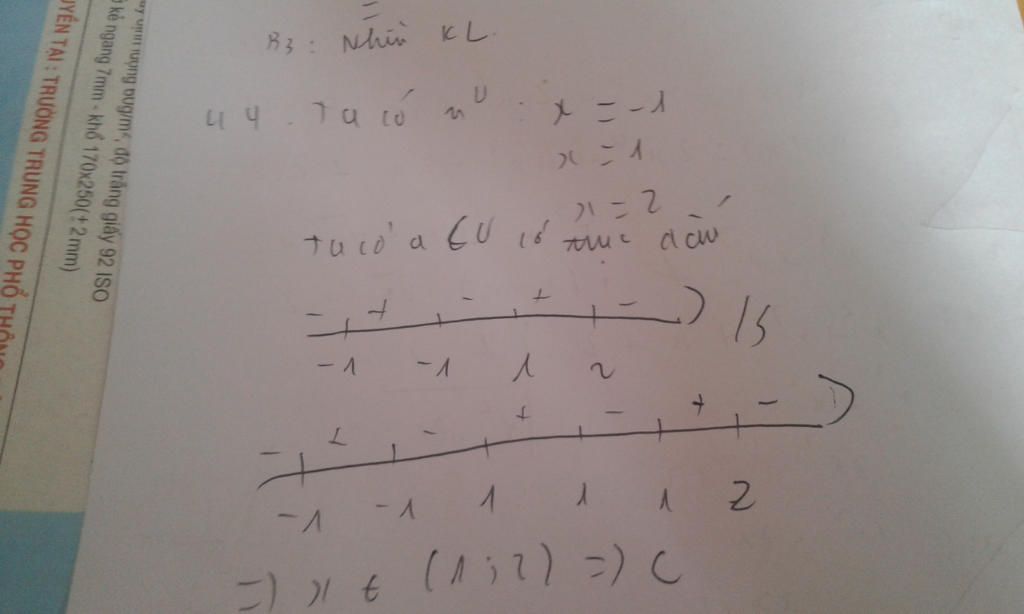 B3: Nhìn KL.
44. Ta có n⁰: x = -1
x = 1
x = 2
Ta có a < 0 có trục dấu
- + - + -
-1 -1 1 2
- + - + - + -
-1 -1 1 1 1 2
=) x ∈ (1; 2) =) C
ợng 60g/m², độ trắng giấy 92 ISO
kẻ ngang 7mm - khổ 170x250(±2mm)
UYỀN TẢI: TRƯỜNG TRUNG HỌC PHỔ THÔNG